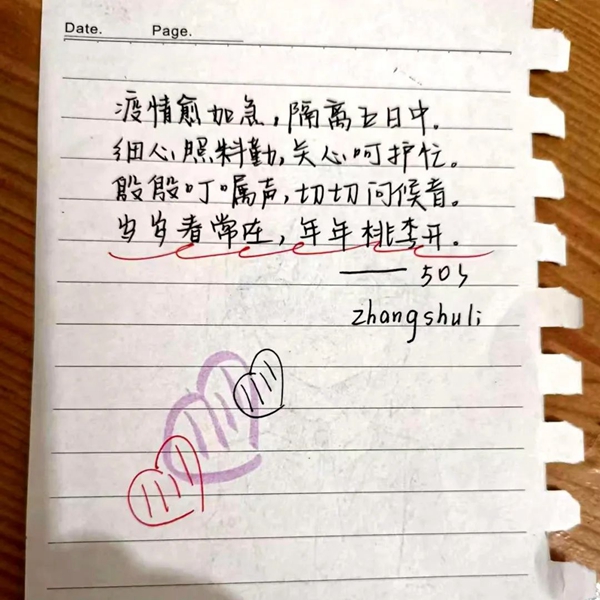 Date. Page.
疫情愈加急,隔离五日中。
细心照料勤,关心呵护忙。
殷殷叮嘱声,切切问候音。
岁岁春常在,年年桃李开。
—— 503
zhangshuli